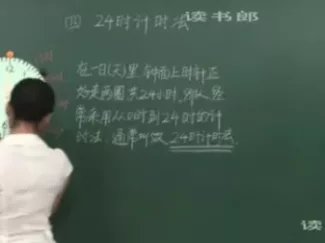 四 24时计时法
读书郎
在一日(天)里,钟面上时针正
好走两圈,共24小时,所以,经
常采用从0时到24时的计
时法,通常叫做 24时计时法.
读